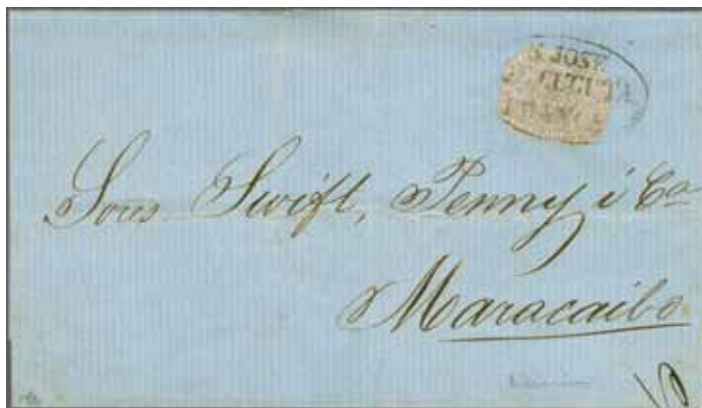 S JOSE
CUCUTA
FRANCA
Sores Swift, Penny i Ca
Maracaibo
10